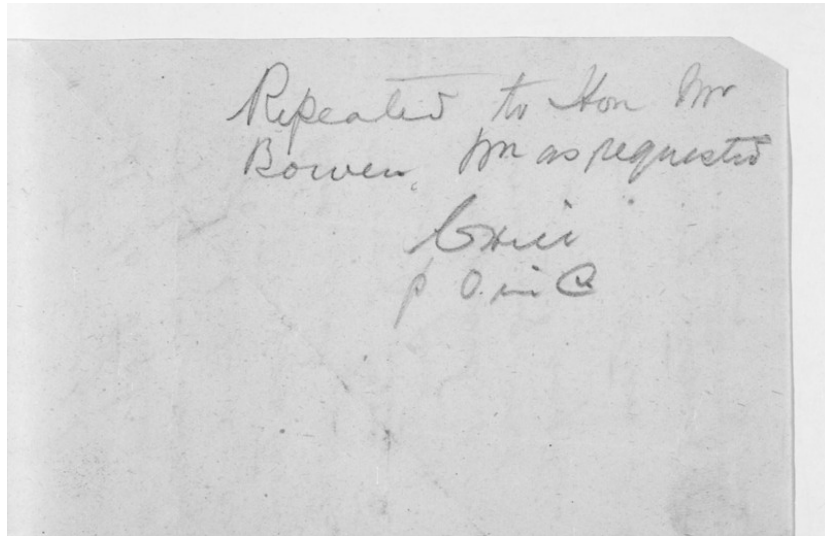 Repeated to Hon Mr
Bowen, as requested
p O. in C